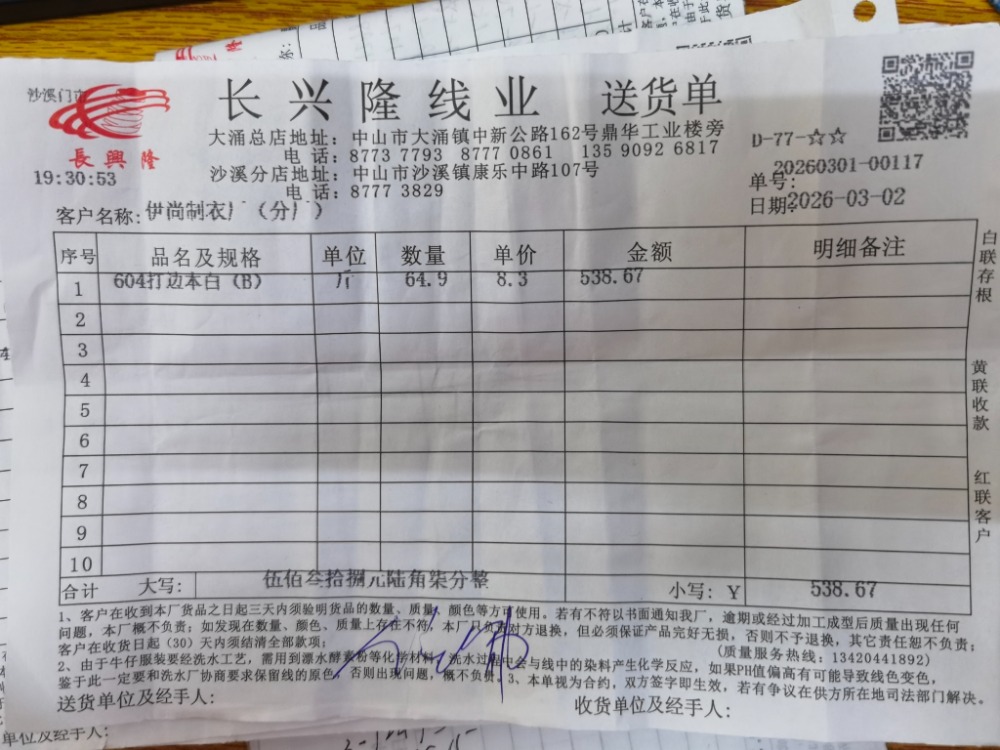 沙溪门市
長興隆
19:30:53
长兴隆线业 送货单
大涌总店地址：中山市大涌镇中新公路162号鼎华工业楼旁
电 话：8773 7793 8777 0861 135 9092 6817
沙溪分店地址：中山市沙溪镇康乐中路107号
电 话：8777 3829
D-77-☆☆
单号：20260301-00117
日期：2026-03-02
客户名称：伊尚制衣厂（分厂）
序号 品名及规格 单位 数量 单价 金额 明细备注
1 604打边本白（B） 斤 64.9 8.3 538.67
2
3
4
5
6
7
8
9
10
合计 大写： 伍佰叁拾捌元陆角柒分整 小写：￥ 538.67
白联存根
黄联收款
红联客户
1、客户在收到本厂货品之日起三天内须验明货品的数量、质量、颜色等方可使用。若有不符以书面通知我厂，逾期或经过加工成型后质量出现任何
问题，本厂概不负责；如发现在数量、颜色、质量上存在不符，本厂只负责对方退换，但必须保证产品完好无损，否则不予退换，其它责任恕不负责；
客户在收货日起（30）天内须结清全部款项； （质量服务热线：13420441892）
2、由于牛仔服装要经洗水工艺，需用到漂水酵素粉等化学材料，洗水过程中会与线中的染料产生化学反应，如果PH值偏高有可能导致线色变色，
鉴于此一定要和洗水厂协商要求保留线的原色，否则出现问题，概不负责。3、本单视为合约，双方签字即生效，若有争议在供方所在地司法部门解决。
送货单位及经手人： 收货单位及经手人：
单位及经手人：